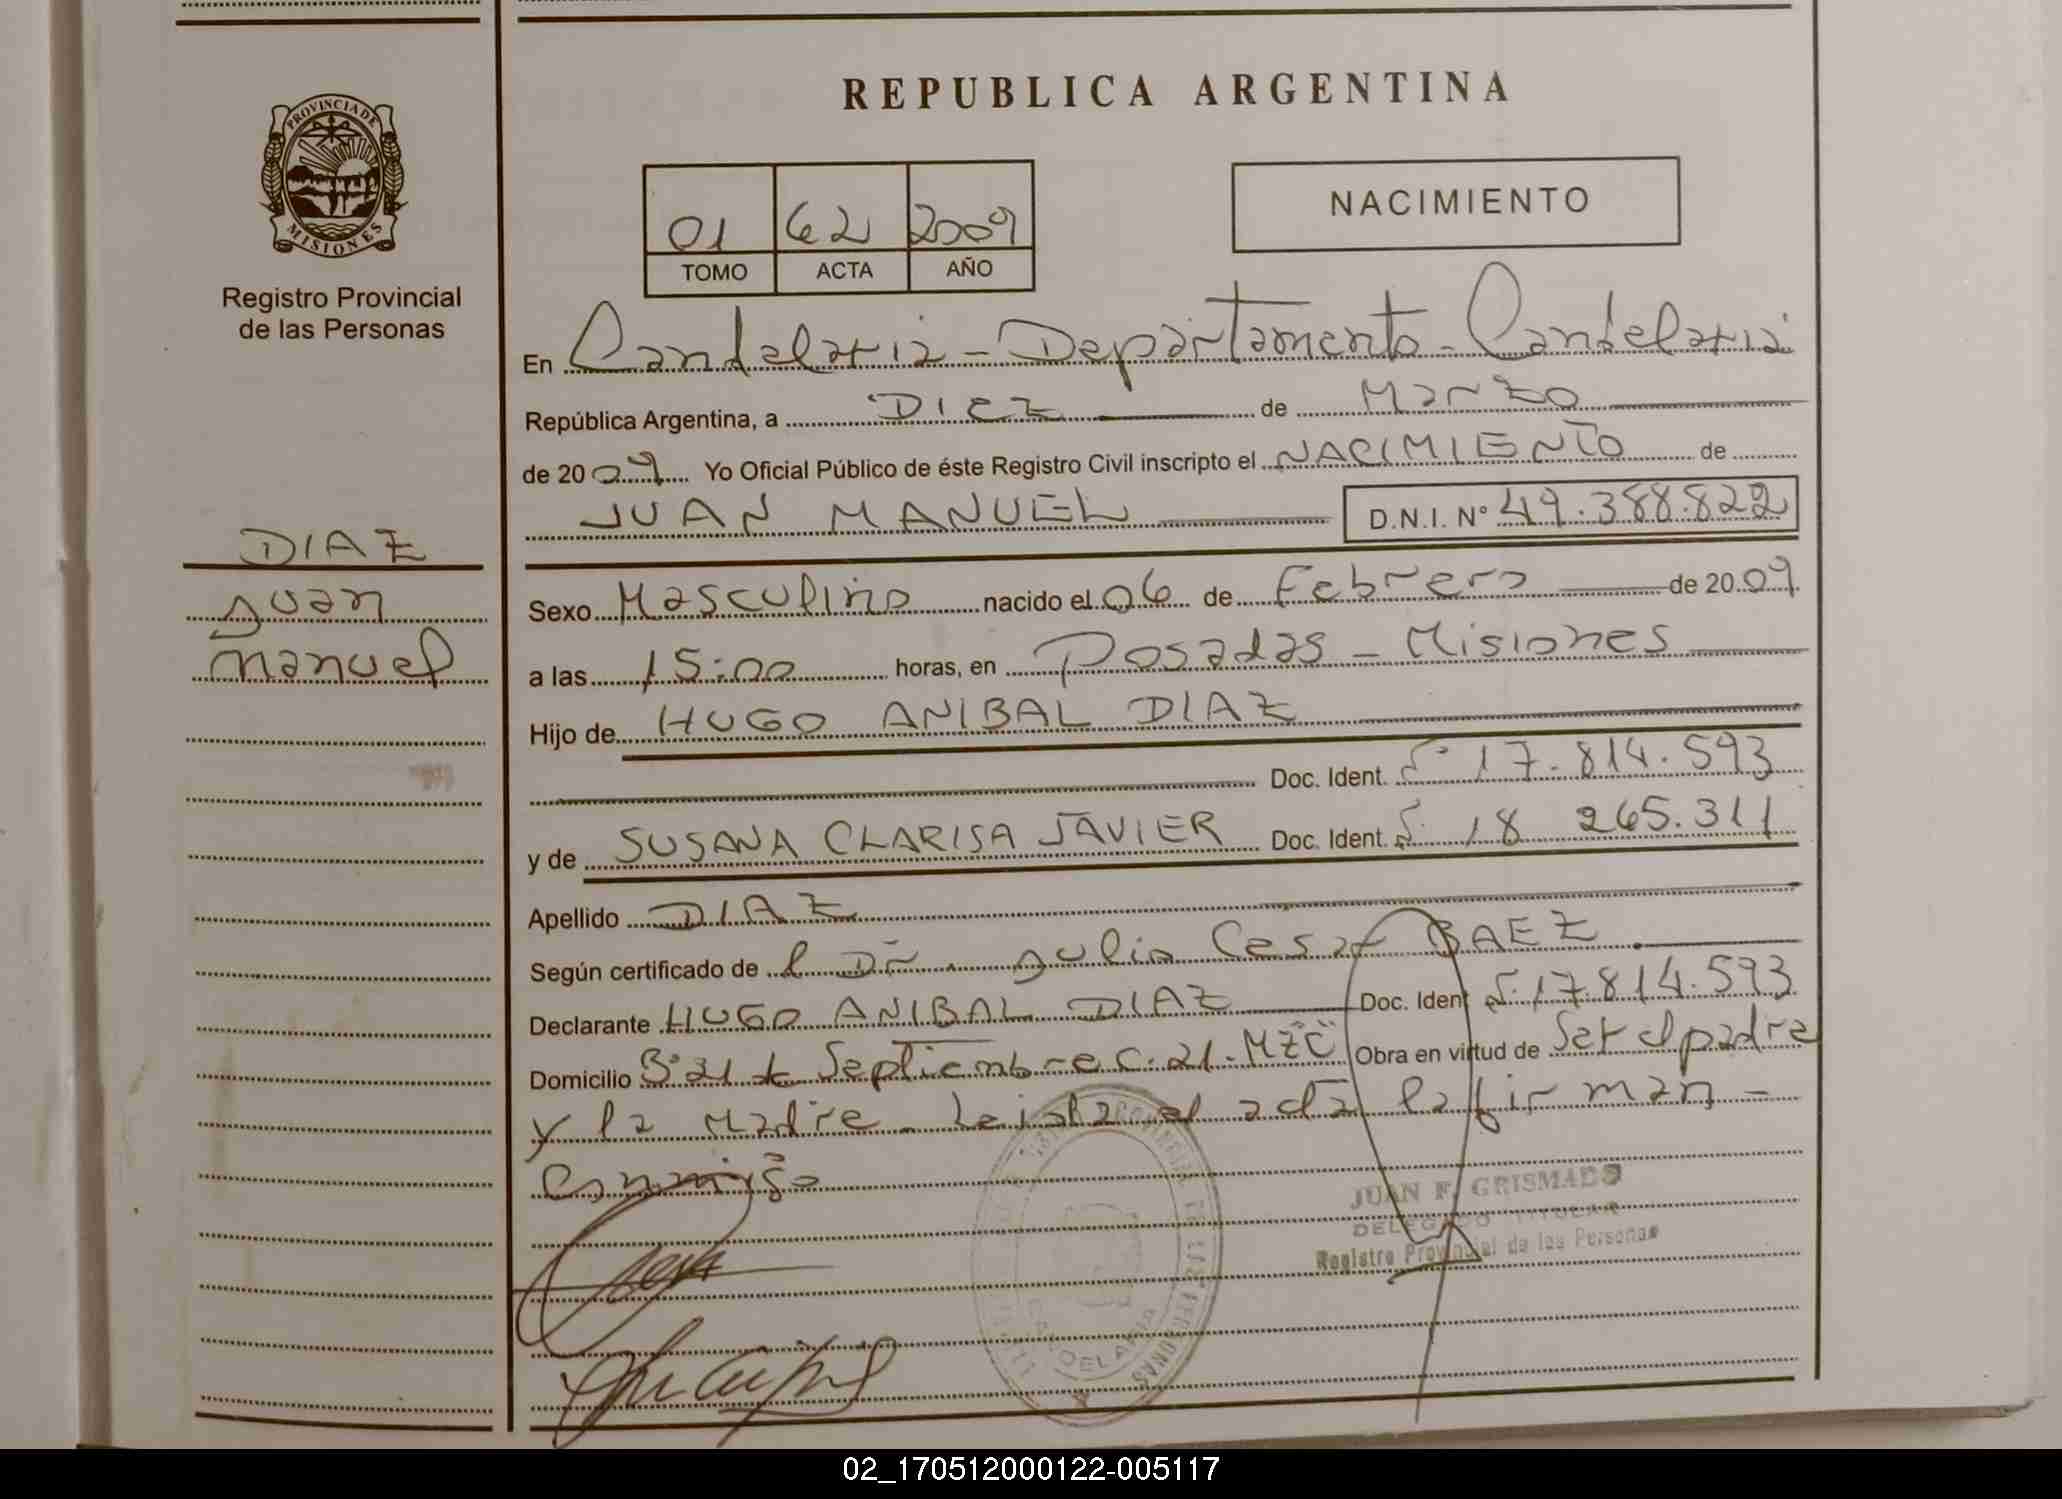 REPUBLICA ARGENTINA
PROVINCIA DE
MISIONES
Registro Provincial
de las Personas
01 62 2009
TOMO ACTA AÑO
NACIMIENTO
En Candelaria - Departamento - Candelaria
República Argentina, a DIEZ de Marzo
de 2009 Yo Oficial Público de éste Registro Civil inscripto el NACIMIENTO de
JUAN MANUEL D.N.I. Nº 49.388.822
DIAZ
Juan
Manuel
Sexo Masculino nacido el 06 de Febrero de 2009
a las 15:00 horas, en Posadas - Misiones
Hijo de HUGO ANIBAL DIAZ
Doc. Ident. 17.814.593
y de SUSANA CLARISA JAVIER Doc. Ident. 18 265.311
Apellido DIAZ
Según certificado de l Dr. Julio Cesar BAEZ
Declarante HUGO ANIBAL DIAZ Doc. Ident 17.814.593
Domicilio Bº 21 de Septiembre C. 21. MZ C Obra en virtud de Ser el padre
y la Madre. Leida el acta la firman -
conmigo
JUAN F. GRISMADO
DELEGADO TITULAR
Registro Provincial de las Personas
CANDELARIA
02_170512000122-005117